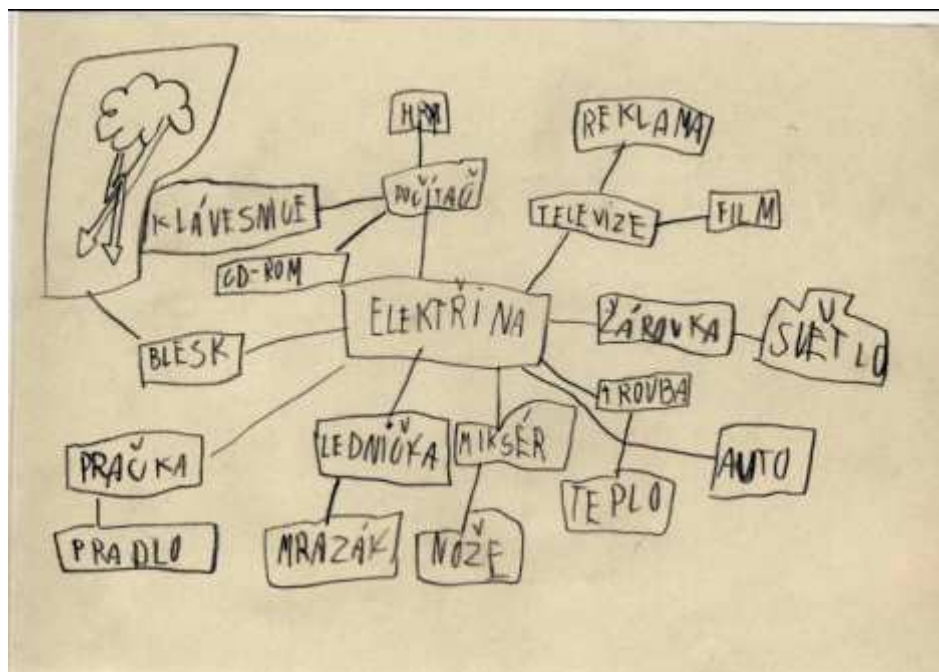 HRY
REKLAMA
POČÍTAČ
KLÁVESNICE
TELEVIZE
FILM
CD-ROM
ELEKTŘINA
ŽÁROVKA
SVĚTLO
BLESK
TROUBA
PRAČKA
LEDNIČKA
MIKSÉR
AUTO
TEPLO
PRADLO
MRAZÁK
NOŽE